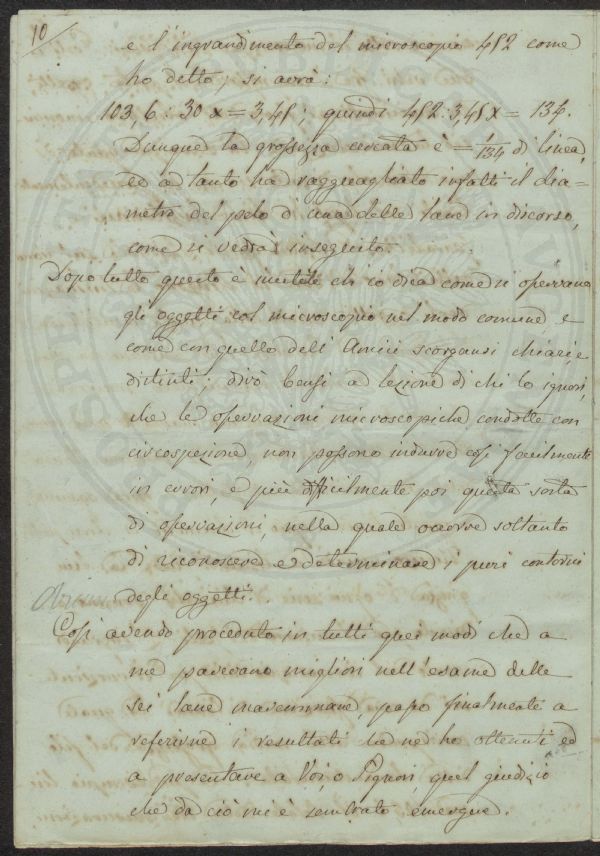 10
e l'ingrandimento del microscopio 452 come
ho detto; si avrà:
103,6 : 30 x = 3,45; quindi 452 : 3,45 x = 134.
Dunque la grossezza cercata è = 1/134 di linea,
ed a tanto ha ragguagliato infatti il dia-
metro del pelo d'una delle lane in discorso,
come si vedrà in seguito.
Dopo tutto questo è inutile ch'io dica come si osservano
gli oggetti col microscopio nel modo comune e
come con quello dell'Amici scorgansi chiari, e
distinti; dirò bensì a lezione di chi lo ignori,
che le osservazioni microscopiche condotte con
circospezione, non possono indurre così facilmente
in errori, e più difficilmente poi questa sorta
di osservazioni, nella quale occorre soltanto
di riconoscere e determinare i puri contorni
degli oggetti.
Così avendo proceduto in tutti quei modi che a
me parevano migliori nell'esame delle
sei lane maremmane, passo finalmente a
riferirne i resultati che ne ho ottenuti ed
a presentare a Voi, o Signori, quel giudizio
che da ciò mi è sembrato emergere.